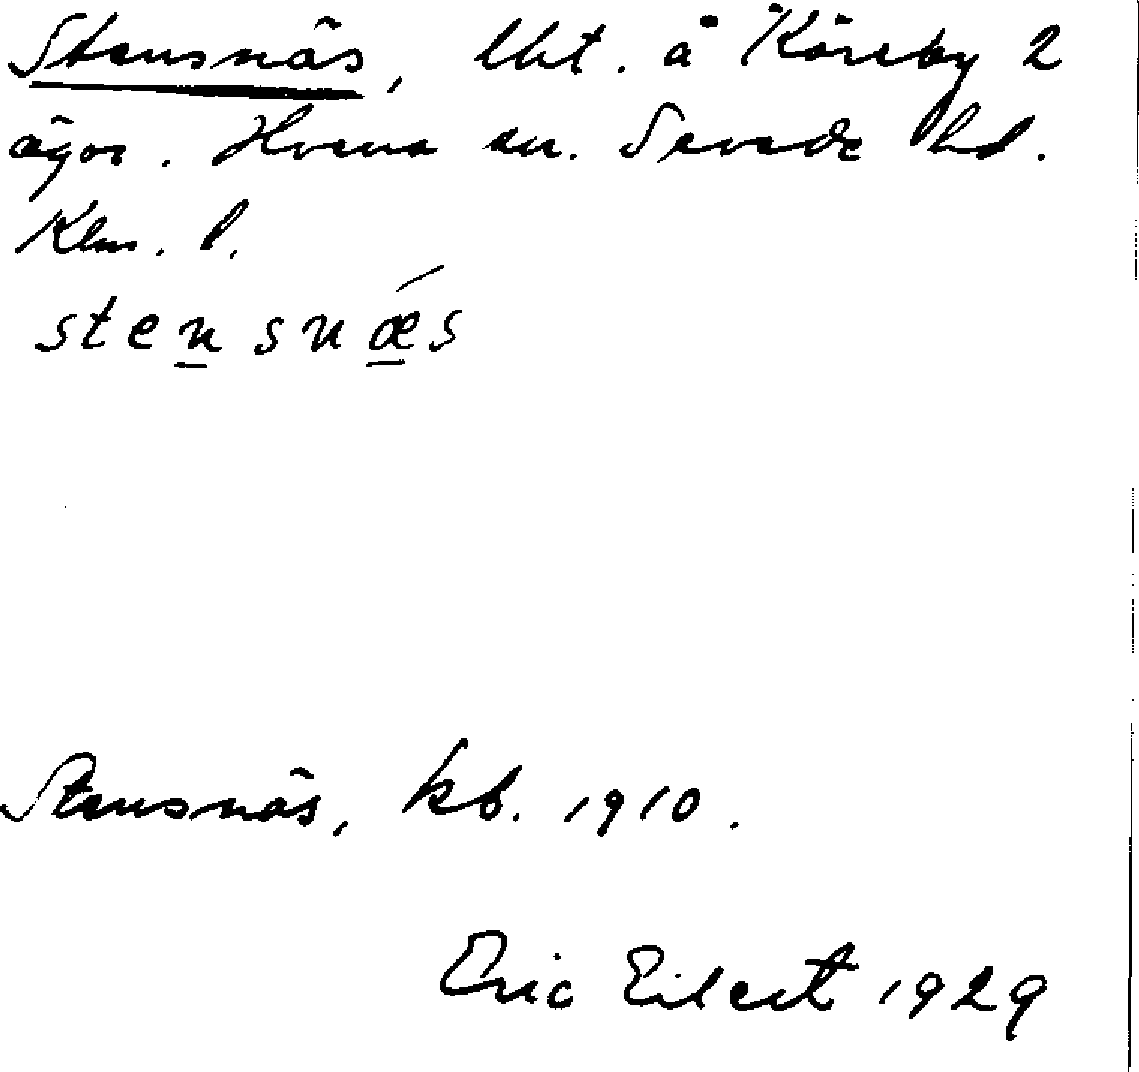 Stensnäs, lht. å Köreby 2
ägor. Hvena sn. Sevede hd.
Klm. l.
stensnǽs
Stensnäs, kb. 1910.
Eric Eilert 1929